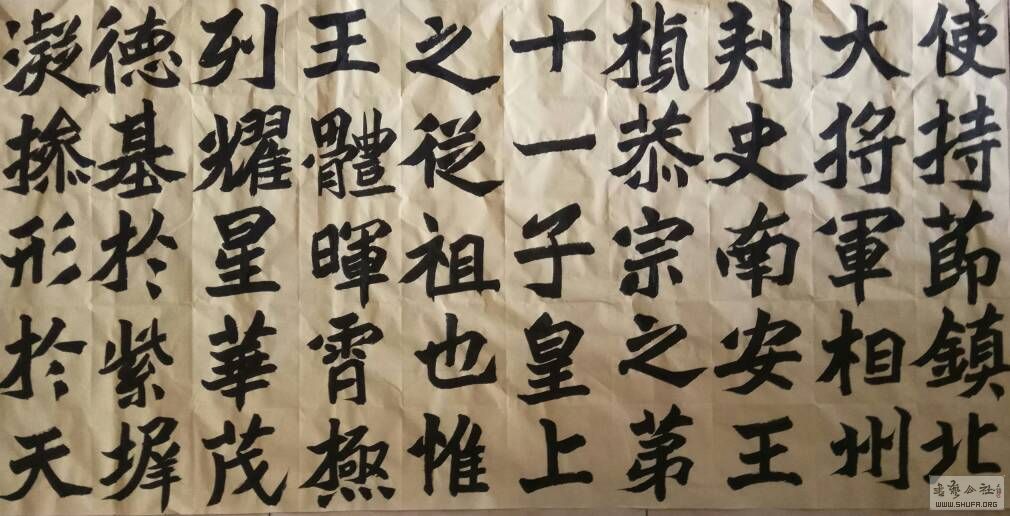 使持莭鎮北
大将軍相州
刾史南安王
楨恭宗之苐
十一子皇上
之従祖也惟
王體暉霄極
列耀星華茂
德基於紫墀
凝摻形於天
书艺公社
WWW.SHUFA.ORG